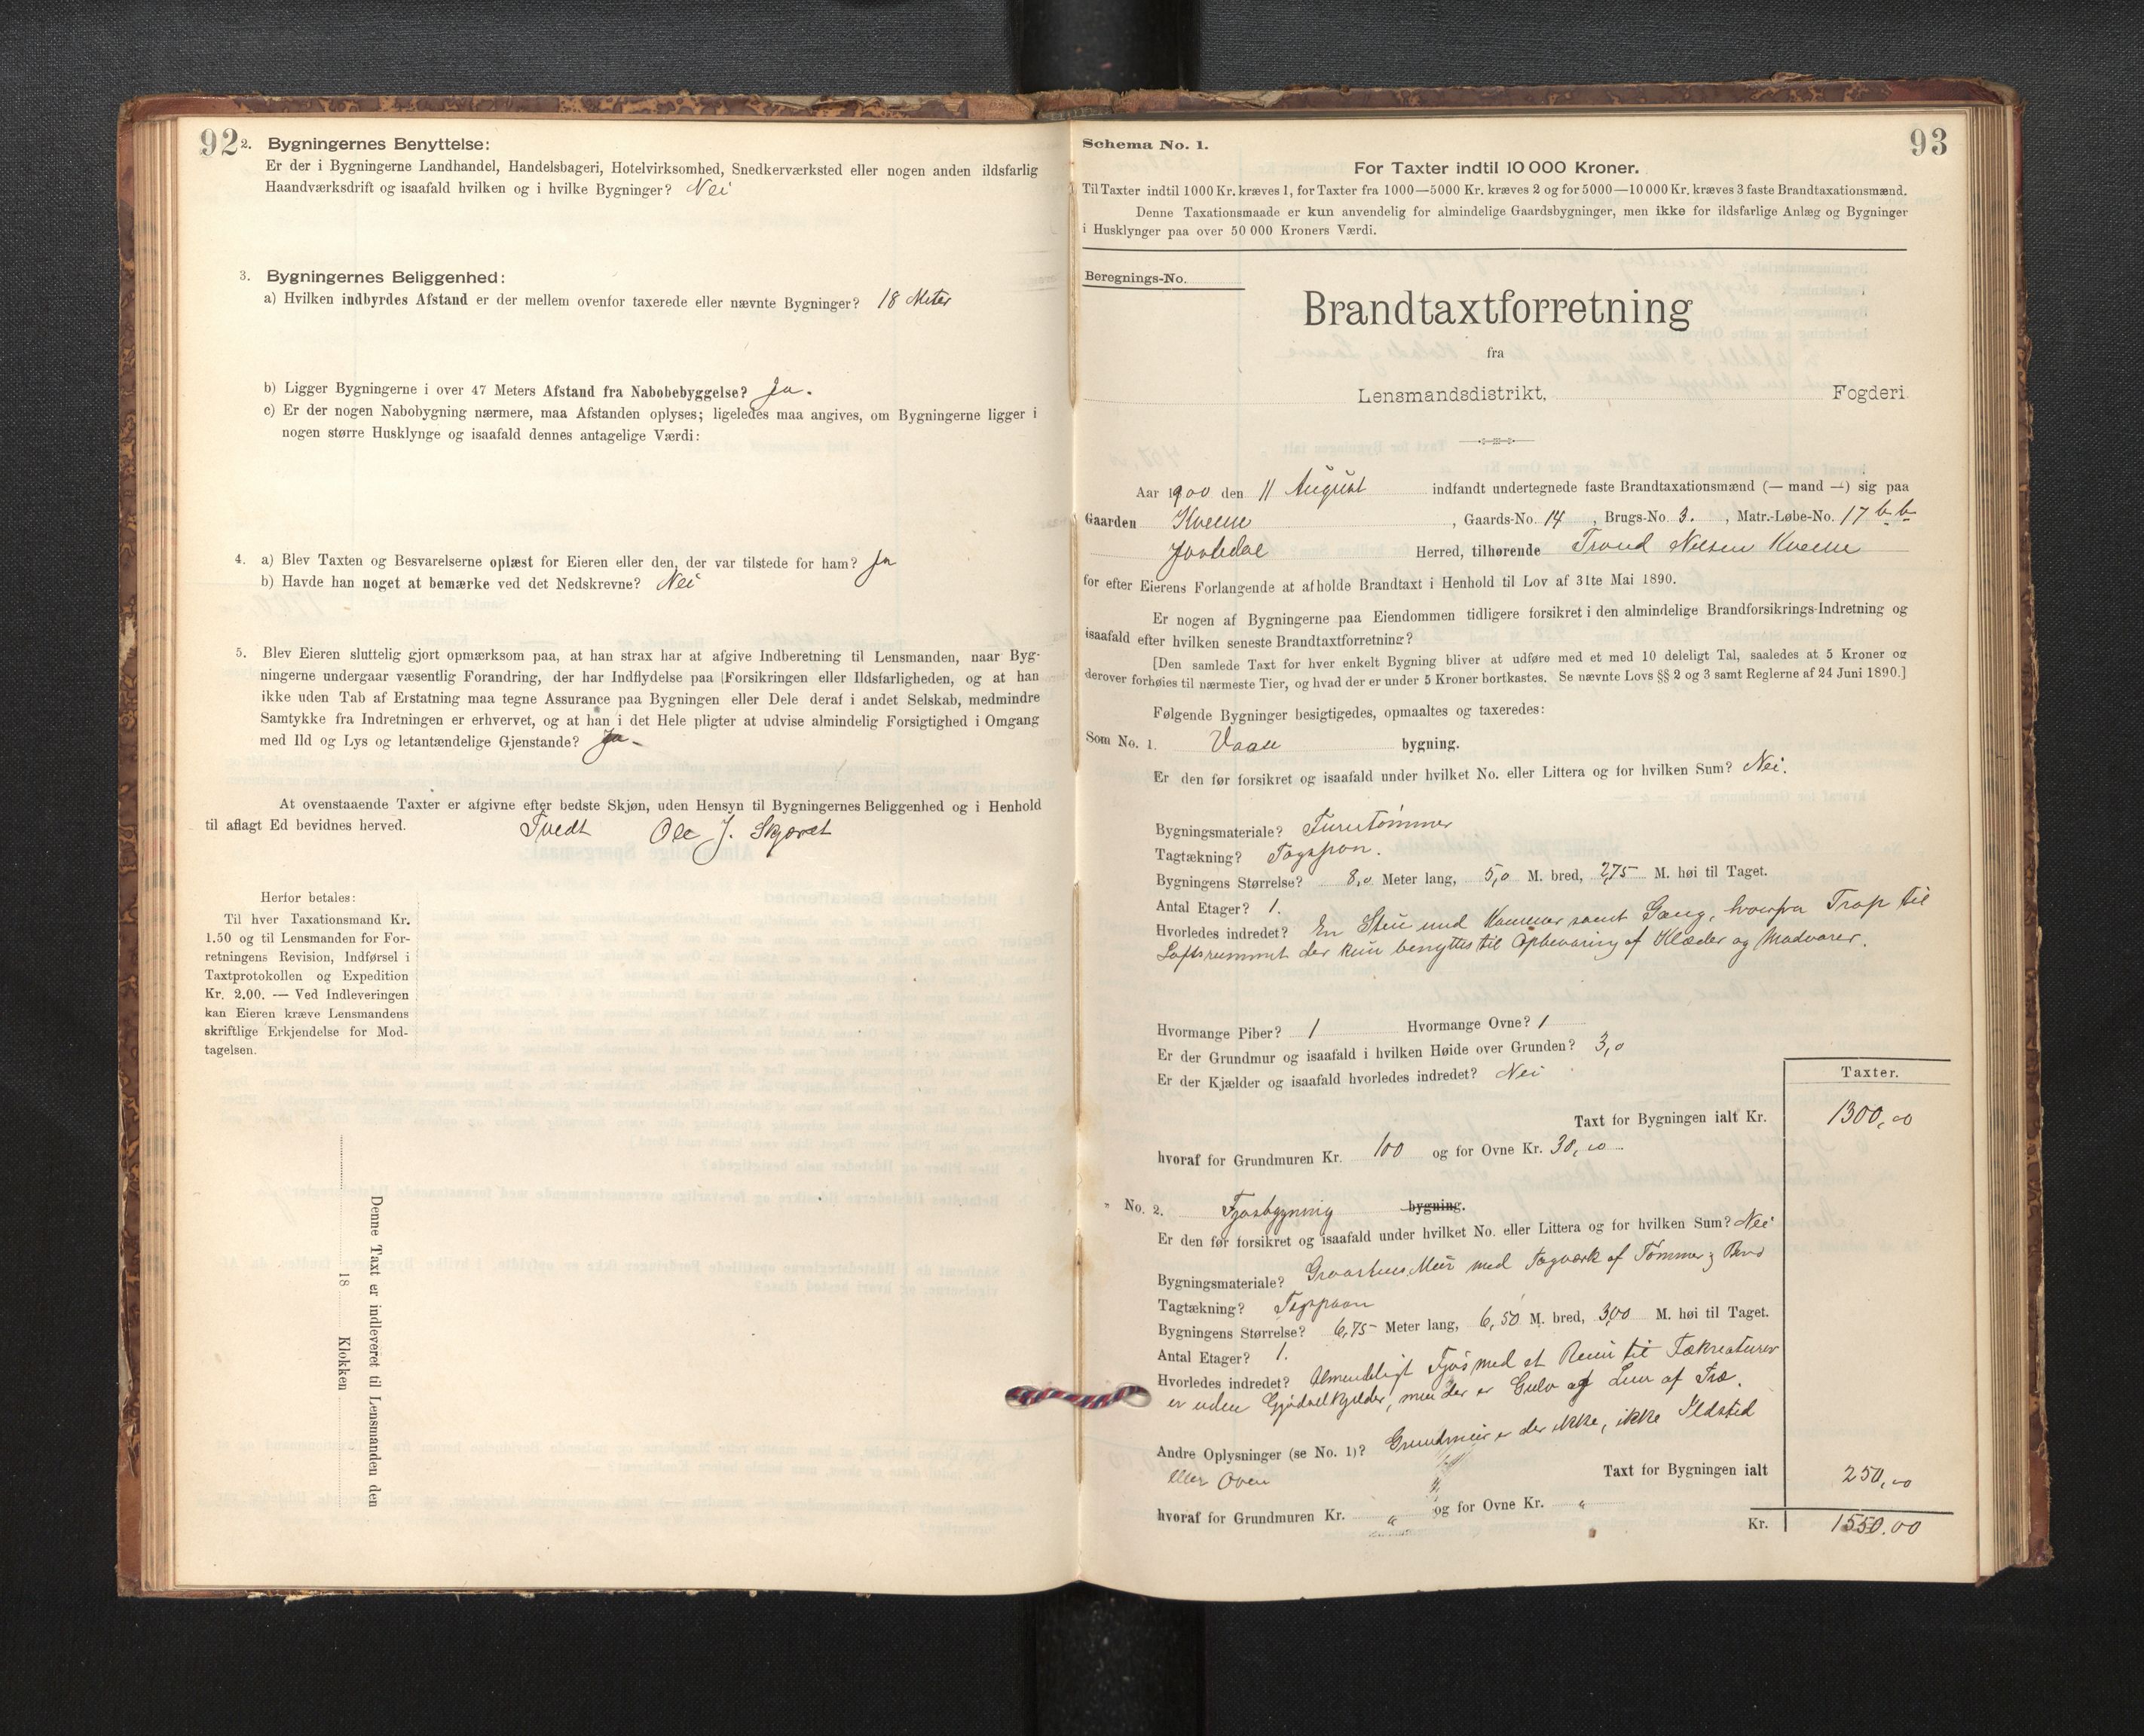 92
2. Bygningernes Benyttelse:
Er der i Bygningerne Landhandel, Handelsbageri, Hotelvirksomhed, Snedkerværksted eller nogen anden ildsfarlig
Haandværksdrift og isaafald hvilken og i hvilke Bygninger? Nei
3. Bygningernes Beliggenhed:
a) Hvilken indbyrdes Afstand er der mellem ovenfor taxerede eller nævnte Bygninger? 18 Meter
b) Ligger Bygningerne i over 47 Meters Afstand fra Nabobebyggelse? Ja.
c) Er der nogen Nabobygning nærmere, maa Afstanden oplyses; ligeledes maa angives, om Bygningerne ligger i
nogen større Husklynge og isaafald dennes antagelige Værdi:
4. a) Blev Taxten og Besvarelserne oplæst for Eieren eller den, der var tilstede for ham? Ja
b) Havde han noget at bemærke ved det Nedskrevne? Nei
5. Blev Eieren sluttelig gjort opmærksom paa, at han strax har at afgive Indberetning til Lensmanden, naar Byg-
ningerne undergaar væsentlig Forandring, der har Indflydelse paa Forsikringen eller Ildsfarligheden, og at han
ikke uden Tab af Erstatning maa tegne Assurance paa Bygningen eller Dele deraf i andet Selskab, medmindre
Samtykke fra Indretningen er erhvervet, og at han i det Hele pligter at udvise almindelig Forsigtighed i Omgang
med Ild og Lys og letantændelige Gjenstande? Ja-
At ovenstaaende Taxter er afgivne efter bedste Skjøn, uden Hensyn til Bygningernes Beliggenhed og i Henhold
til aflagt Ed bevidnes herved. Tvedt Ole J. Skjøret
Herfor betales:
Til hver Taxationsmand Kr.
1.50 og til Lensmanden for For-
retningens Revision, Indførsel i
Taxtprotokollen og Expedition
Kr. 2.00. — Ved Indleveringen
kan Eieren kræve Lensmandens
skriftlige Erkjendelse for Mod-
tagelsen.
Denne Taxt er indleveret til Lensmanden den
18 Klokken
93
Schema No. 1.
For Taxter indtil 10 000 Kroner.
Til Taxter indtil 1000 Kr. kræves 1, for Taxter fra 1000—5000 Kr. kræves 2 og for 5000—10 000 Kr. kræves 3 faste Brandtaxationsmænd.
Denne Taxationsmaade er kun anvendelig for almindelige Gaardsbygninger, men ikke for ildsfarlige Anlæg og Bygninger
i Husklynger paa over 50 000 Kroners Værdi.
Beregnings-No.
Brandtaxtforretning
fra
Lensmandsdistrikt, Fogderi.
Aar 1900 den 11 August indfandt undertegnede faste Brandtaxationsmænd (— mand —) sig paa
Gaarden Kveme, Gaards-No. 14, Brugs-No. 3., Matr.-Løbe-No. 17 b b
Jostedal Herred, tilhørende Trond Nilsen Kveme
for efter Eierens Forlangende at afholde Brandtaxt i Henhold til Lov af 31te Mai 1890.
Er nogen af Bygningerne paa Eiendommen tidligere forsikret i den almindelige Brandforsikrings-Indretning og
isaafald efter hvilken seneste Brandtaxtforretning?
[Den samlede Taxt for hver enkelt Bygning bliver at udføre med et med 10 deleligt Tal, saaledes at 5 Kroner og
derover forhøies til nærmeste Tier, og hvad der er under 5 Kroner bortkastes. Se nævnte Lovs §§ 2 og 3 samt Reglerne af 24 Juni 1890.]
Følgende Bygninger besigtigedes, opmaaltes og taxeredes:
Som No. 1. Vaane bygning.
Er den før forsikret og isaafald under hvilket No. eller Littera og for hvilken Sum? Nei.
Bygningsmateriale? Furutømmer
Tagtækning? Tagspon.
Bygningens Størrelse? 8,0 Meter lang, 5,0 M. bred, 2,75 M. høi til Taget.
Antal Etager? 1.
Hvorledes indredet? En Stue med Kammer samt Gang, hvorfra Trap til
Loftsrummet der kun benyttes til Opbevaring af Klæder og Madvarer.
Hvormange Piber? 1 Hvormange Ovne? 1
Er der Grundmur og isaafald i hvilken Høide over Grunden? 3,0
Er der Kjælder og isaafald hvorledes indredet? Nei
Taxter.
Taxt for Bygningen ialt Kr. 1300,00
hvoraf for Grundmuren Kr. 100 og for Ovne Kr. 30,00
" No. 2. Fjøsbygning bygning.
Er den før forsikret og isaafald under hvilket No. eller Littera og for hvilken Sum? Nei
Bygningsmateriale? Graastens Mur med Tagværk af Tømmer og Bord
Tagtækning? Tagspaan
Bygningens Størrelse? 6,75 Meter lang, 6,50 M. bred, 3,00 M. høi til Taget.
Antal Etager? 1.
Hvorledes indredet? Almendeligt Fjøs med et Rum til Fækreaturer
er uden Gjødselkjelder, men der er Gulv af Træ.
Andre Oplysninger (se No. 1)? Grundmur er der ikke, ikke Ildsted
eller Oven
Taxt for Bygningen ialt 250,00
hvoraf for Grundmuren Kr. " og for Ovne Kr. "
Kr. 1550.00